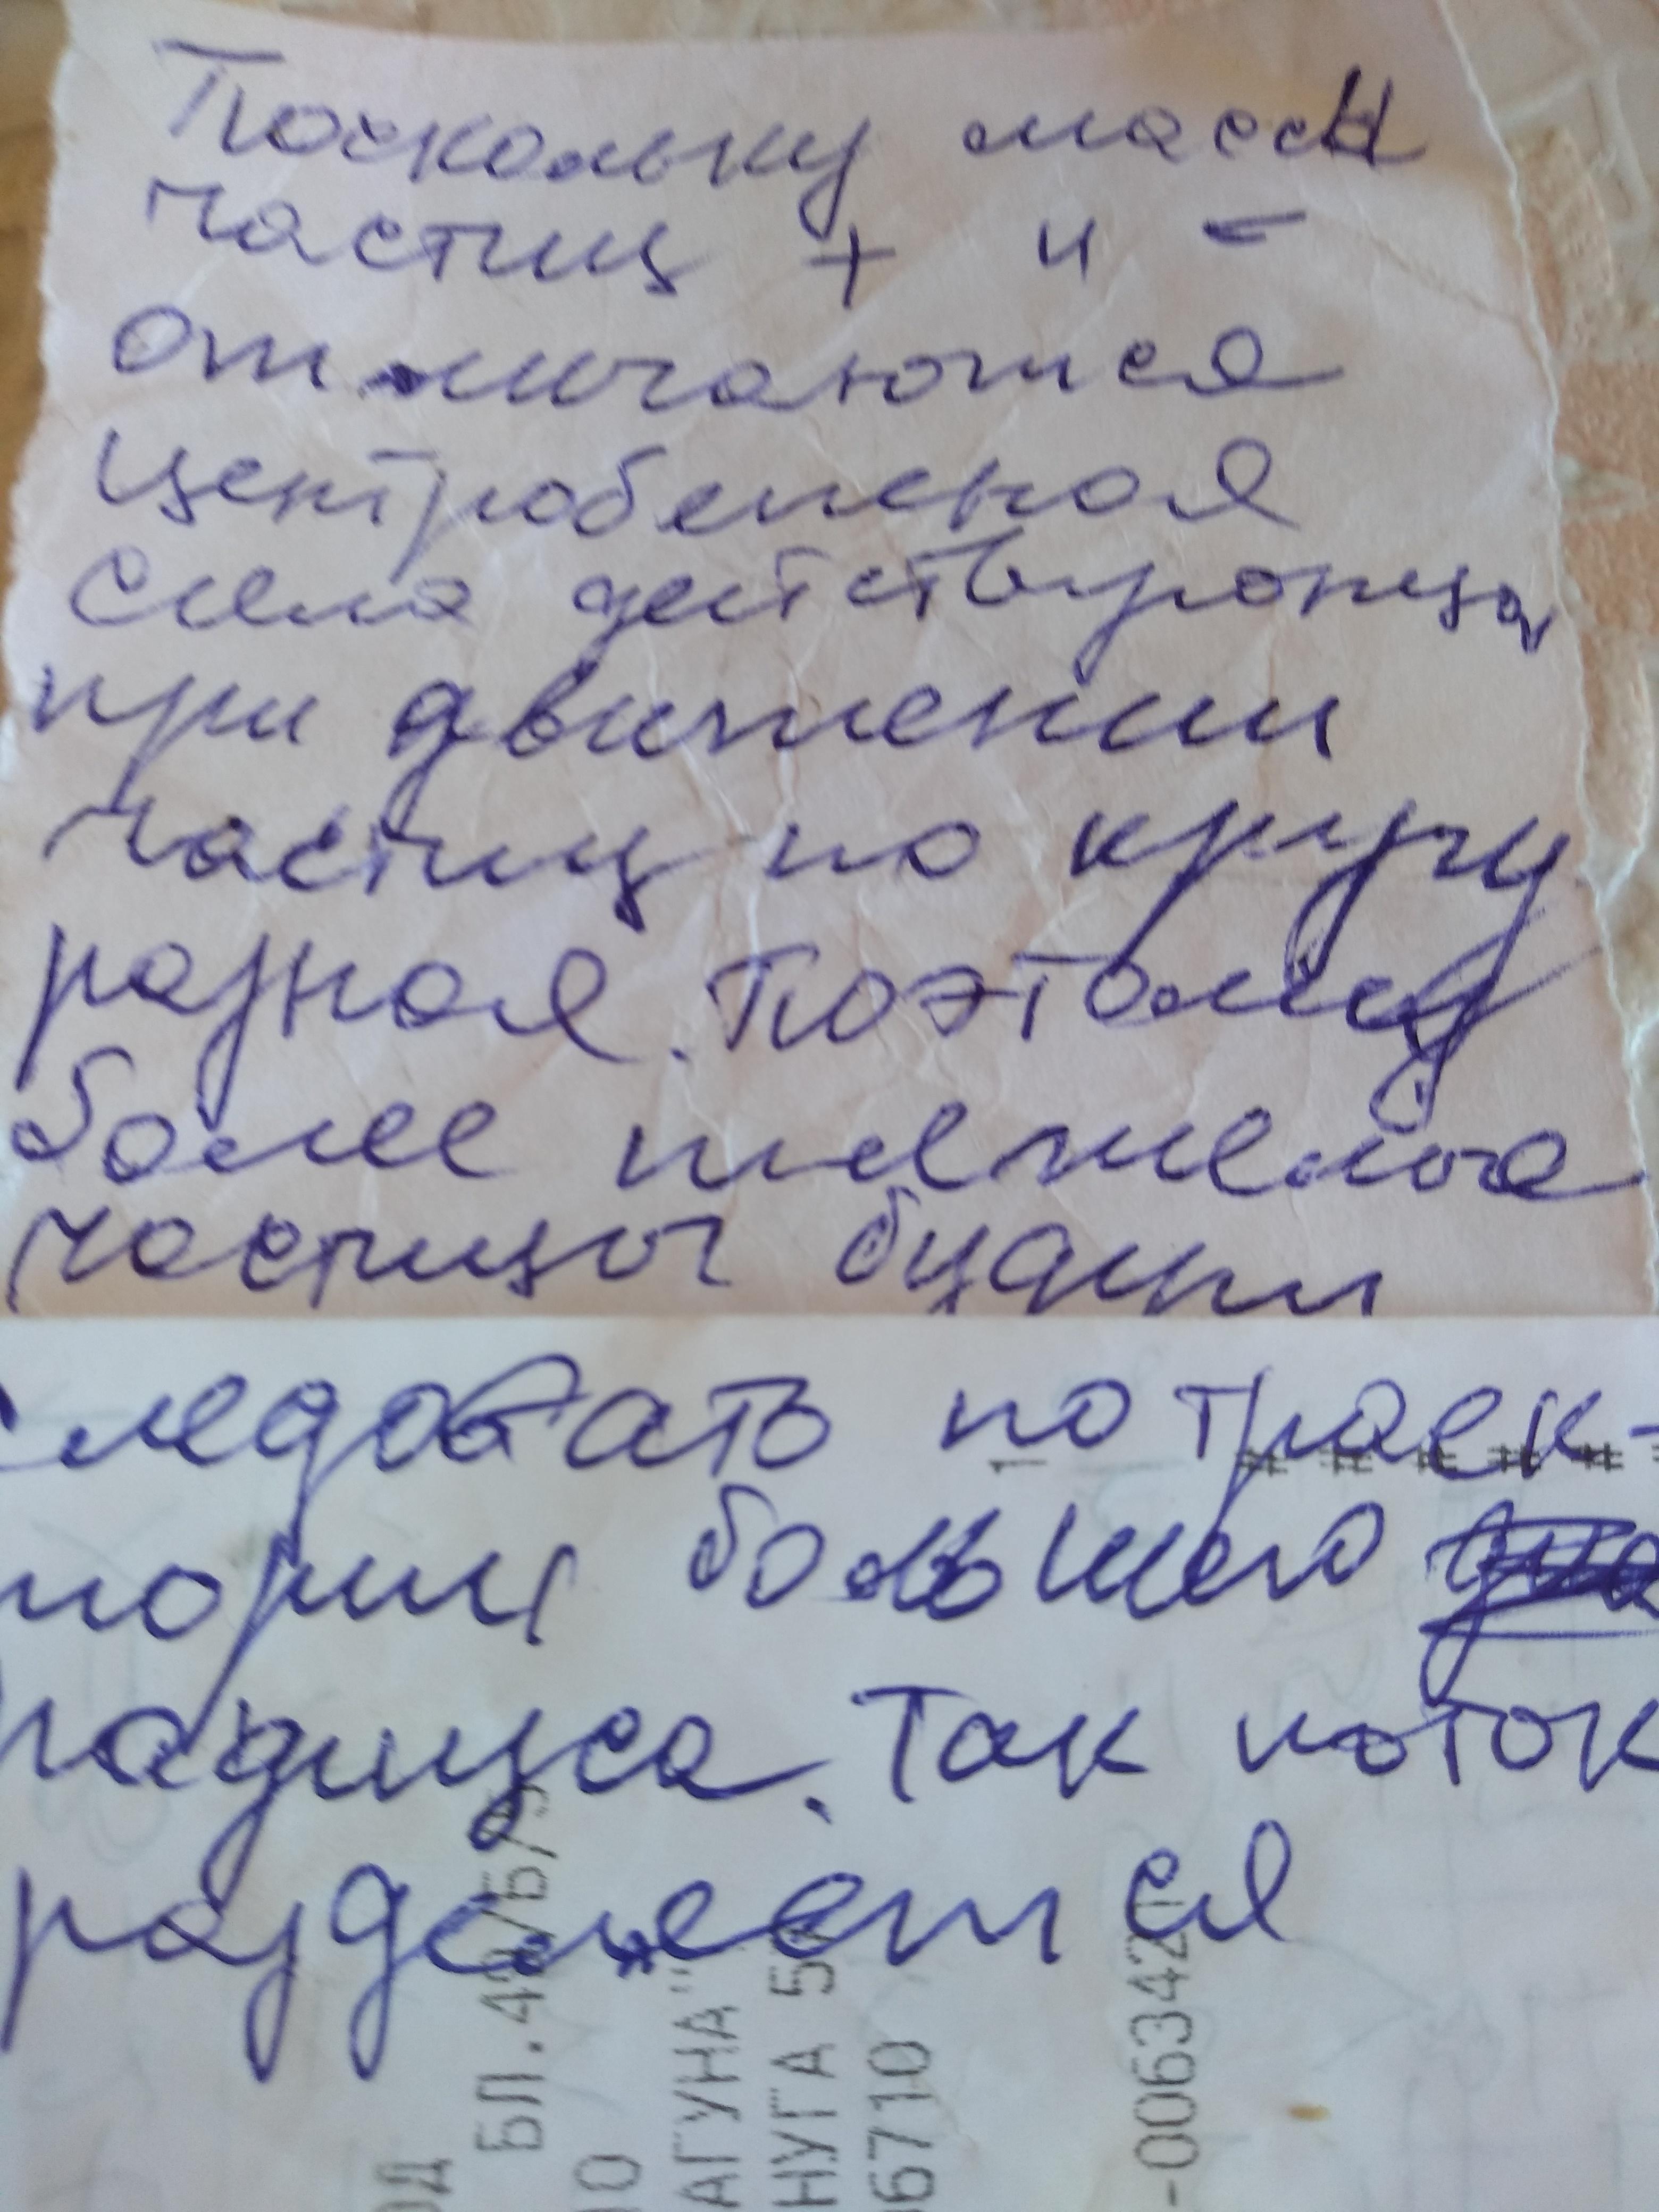 Поскольку массы
частиц + и -
отличаются
центробежная
сила действующа
при движении
частиц по кругу
разная. Поэтому
более тяжелыа
частицы будут
следовать по траек-
тории большего
радиуса. Так поток
разделяется
БЛ.42/Б/5
АГУНА"
НУГА 5
66710
-0063421